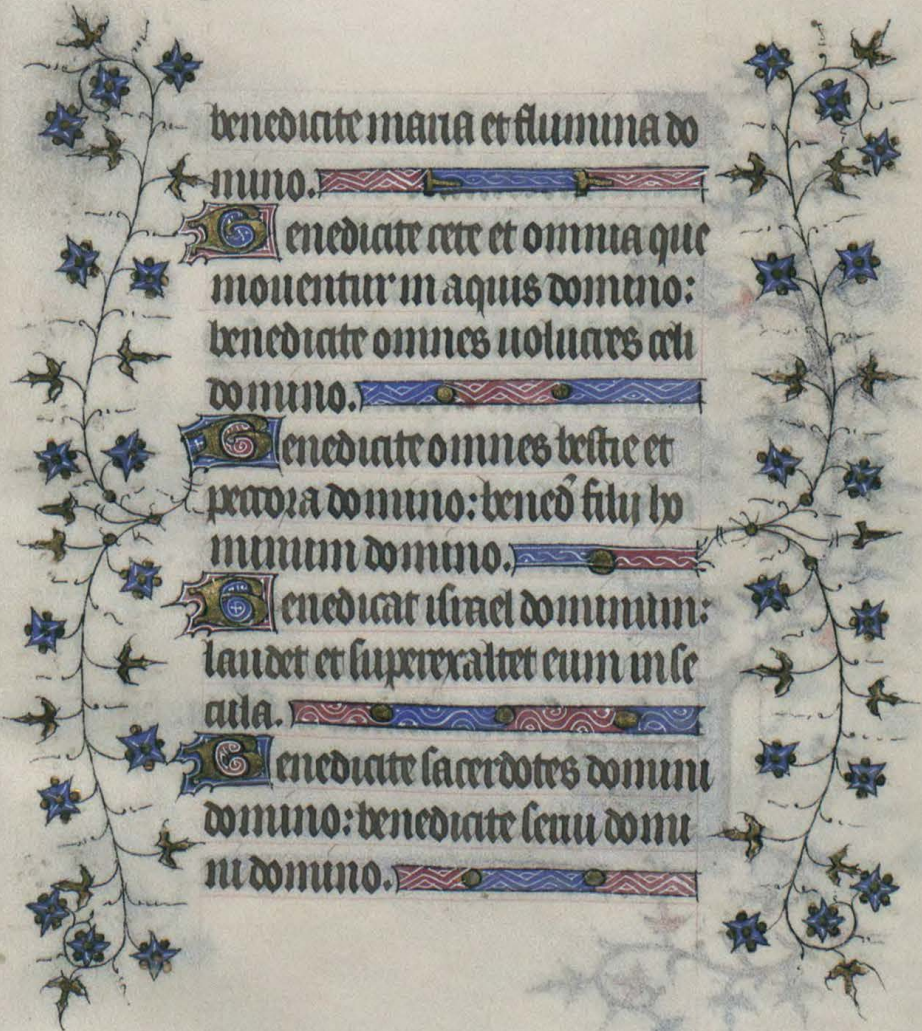 benedicite maria et flumina do
mino.
Benedicite cete et omnia que
mouentur in aquis domino:
benedicite omnes uolucres celi
domino.
Benedicite omnes bestie et
peccora domino: bened̄ filij ho
minum domino.
Benedicat israel dominum:
laudet et superexaltet eum in se
cula.
Benedicite sacerdotes domini
domino: benedicite serui domi
ni domino.